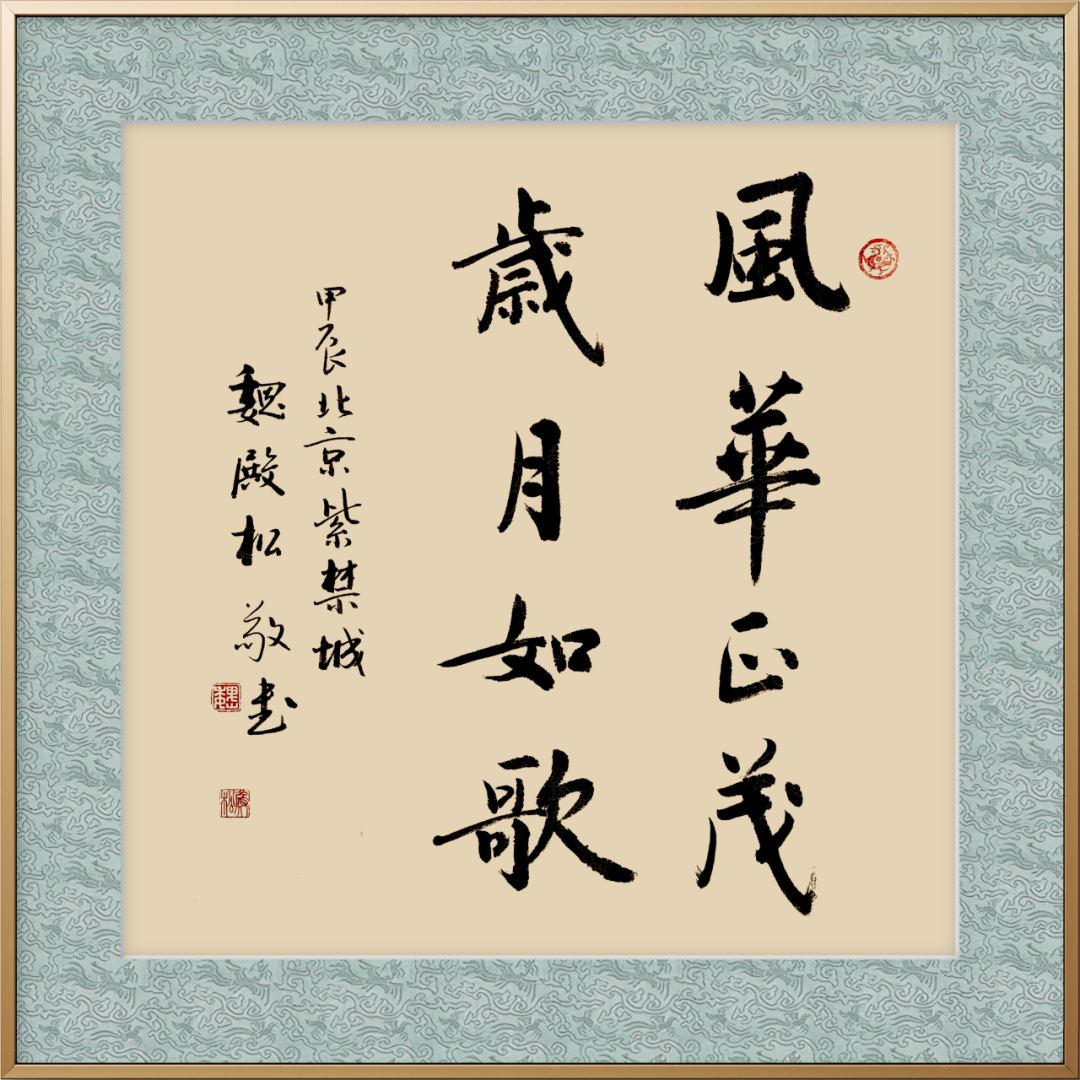 風華正茂
歲月如歌
甲辰北京紫禁城
魏殿松敬书
魏
殿松